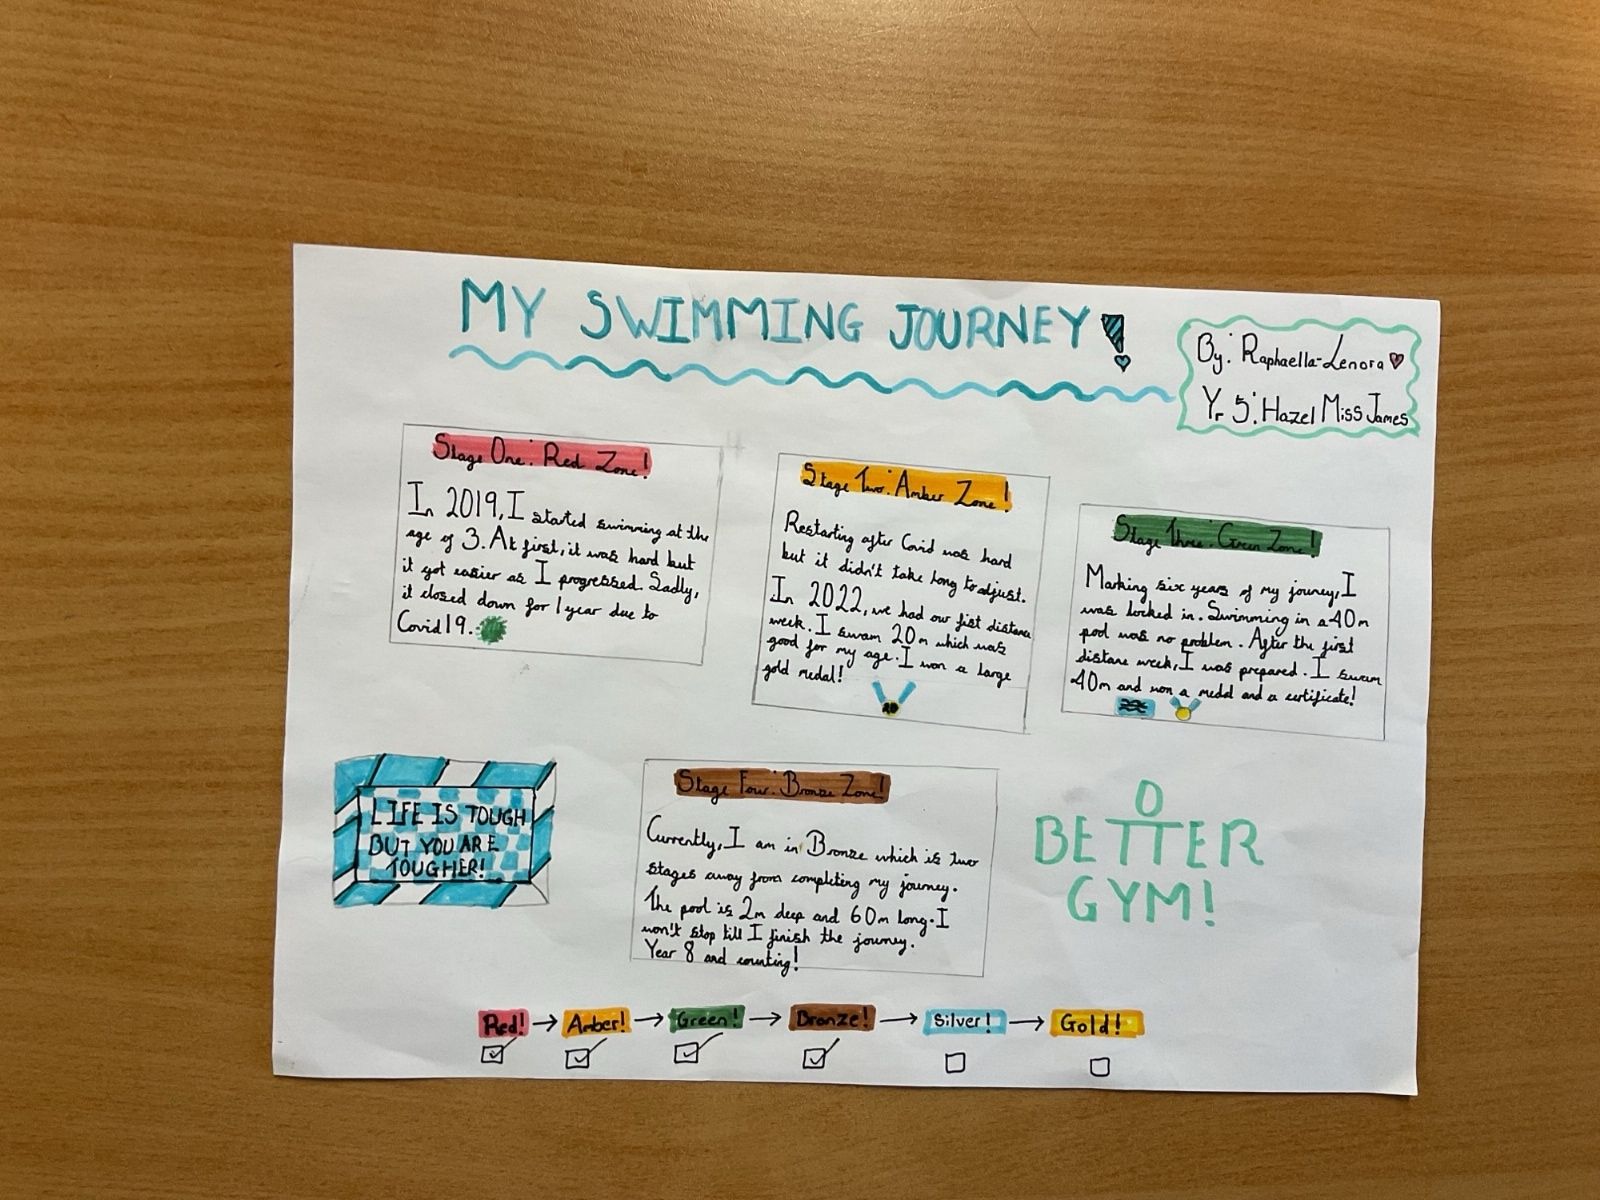 MY SWIMMING JOURNEY!
By: Raphaella-Lenora
Yr 5: Hazel Miss James
Stage One: Red Zone!
In 2019, I started swimming at the
age of 3. At first, it was hard but
it got easier as I progressed. Sadly,
it closed down for 1 year due to
Covid19.
Stage Two: Amber Zone!
Restarting after Covid was hard
but it didn't take long to adjust.
In 2022, we had our fist distance
week. I swam 20m which was
good for my age. I won a large
gold medal!
Stage Three: Green Zone!
Marking six years of my journey, I
was locked in. Swimming in a 40m
pool was no problem. After the first
distane week, I was prepared. I swam
40m and won a medal and a certificate!
LIFE IS TOUGH
BUT YOU ARE
TOUGHER!
Stage Four: Bronze Zone!
Currently, I am in Bronze which is two
stages away from completing my journey.
The pool is 2m deep and 60m long. I
won't stop till I finish the journey.
Year 8 and counting!
BETTER
GYM!
Red! → Amber! → Green! → Bronze! → Silver! → Gold!